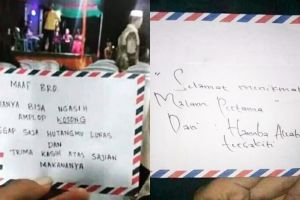 MAAF BRO.
HANYA BISA NGASIH
AMPLOP KOSONG
GGAP SAJA HUTANGMU LUNAS
DAN
TRIMA KASIH ATAS SAJIAN
MAKANANYA
"Selamat menikmat
Malam Pertama"
Dari : Hamba Allah
tersakiti